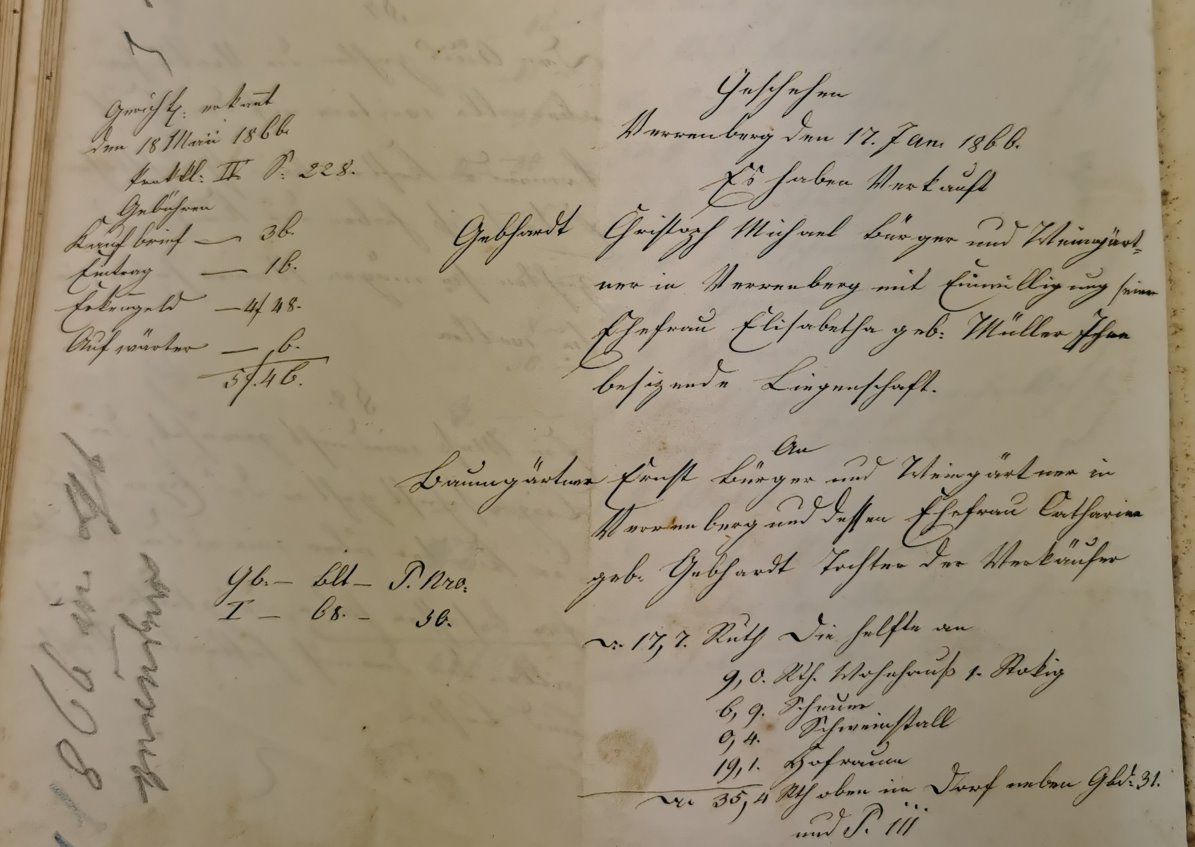 Gerichtl: erkannt
den 18 März 1866.
Protkl: II S: 228.
Gebühren
Kaufbrief — 36.
Eintrag — 16.
Erkenngeld — 4f 48.
Aufwärter — 6.
5f. 46.
Geschehen
Verrenberg den 17. Jan. 1866.
Es haben Verkauft
Gebhardt Christoph Michael Bürger und Weingärt-
ner in Verrenberg mit Einwilligung seiner
Ehefrau Elisabetha geb: Müller Ihre
besizende Liegenschaft.
An
Baumgärtner Ernst Bürger und Weingärtner in
Verrenberg und dessen Ehefrau Catharina
geb: Gebhardt Tochter der Verkäufer
Gb. — Blt — P. Nro.
I — 68. — 36.
17,7. Ruth Die helfte an
9,0. Rth. Wohnhauß 1. Stokig
6,9. Scheuer
0,4. Schweinstall
19,1. Hofraum
35,4 Rth oben im Dorf neben Gbd: 31.
und P. III
1866